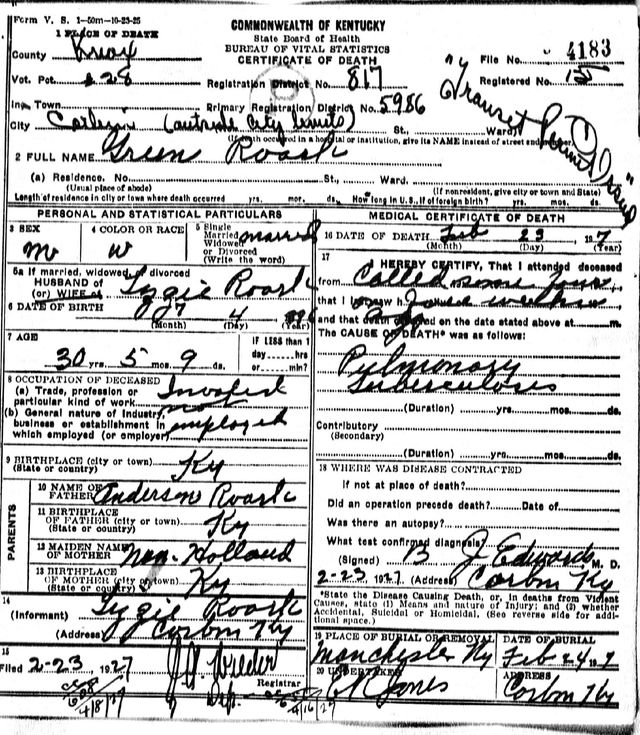 Form V. S. 1-50m-10-23-25
COMMONWEALTH OF KENTUCKY
State Board of Health
BUREAU OF VITAL STATISTICS
CERTIFICATE OF DEATH
1 PLACE OF DEATH
County Knox
File No. 4183
Vot. Pct. 28
Registration District No. 817
Registered No. 15
Inc. Town
Primary Registration District No. 5986
"Transit Permit
City Corbin (outside city limits) St., Ward)
(If death occurred in a hospital or institution, give its NAME instead of street and number)
2 FULL NAME Green Roark
(a) Residence. No. St., Ward.
(Usual place of abode) (If nonresident, give city or town and State)
Length of residence in city or town where death occurred yrs. mos. ds. How long in U.S., if of foreign birth? yrs. mos. ds.
PERSONAL AND STATISTICAL PARTICULARS
3 SEX m
4 COLOR OR RACE w
5 Single Married Widowed or Divorced (Write the word) married
5a If married, widowed, divorced
HUSBAND of
(or) WIFE of Lyzie Roark
6 DATE OF BIRTH 4
(Month) (Day) (Year)
7 AGE
30 yrs. 5 mos. 9 ds.
IF LESS than 1 day hrs. or min?
8 OCCUPATION OF DECEASED
(a) Trade, profession or particular kind of work
(b) General nature of Industry, business or establishment in which employed (or employer) employed
9 BIRTHPLACE (city or town) Ky
(State or country)
PARENTS
10 NAME OF FATHER Anderson Roark
11 BIRTHPLACE OF FATHER (city or town) Ky
(State or country)
12 MAIDEN NAME OF MOTHER Nan Holland
13 BIRTHPLACE OF MOTHER (city or town) Ky
(State or country)
14
(Informant) Lyzie Roark
(Address) Corbin Ky
15
Filed 2-23, 1927 J. H. Wilder
Registrar
Dep.
4/8/27
4/16/27
MEDICAL CERTIFICATE OF DEATH
16 DATE OF DEATH Feb 23, 1927
(Month) (Day)
17
I HEREBY CERTIFY, That I attended deceased
from Called some time
that I last saw h
and that death occurred on the date stated above at m.
The CAUSE OF DEATH* was as follows:
Pulmonary
Tuberculosis
(Duration) yrs. mos. ds.
Contributory
(Secondary)
(Duration) yrs. mos. ds.
18 WHERE WAS DISEASE CONTRACTED
If not at place of death?
Did an operation precede death? Date of
Was there an autopsy?
What test confirmed diagnosis?
(Signed) B J Edwards, M. D.
2-23, 1927 (Address) Corbin Ky
*State the Disease Causing Death, or, in deaths from Violent Causes, state (1) Means and nature of Injury; and (2) whether Accidental, Suicidal or Homicidal. (See reverse side for additional space.)
19 PLACE OF BURIAL OR REMOVAL Manchester Ky
DATE OF BURIAL Feb 24 1927
20 UNDERTAKER Jones
ADDRESS Corbin Ky